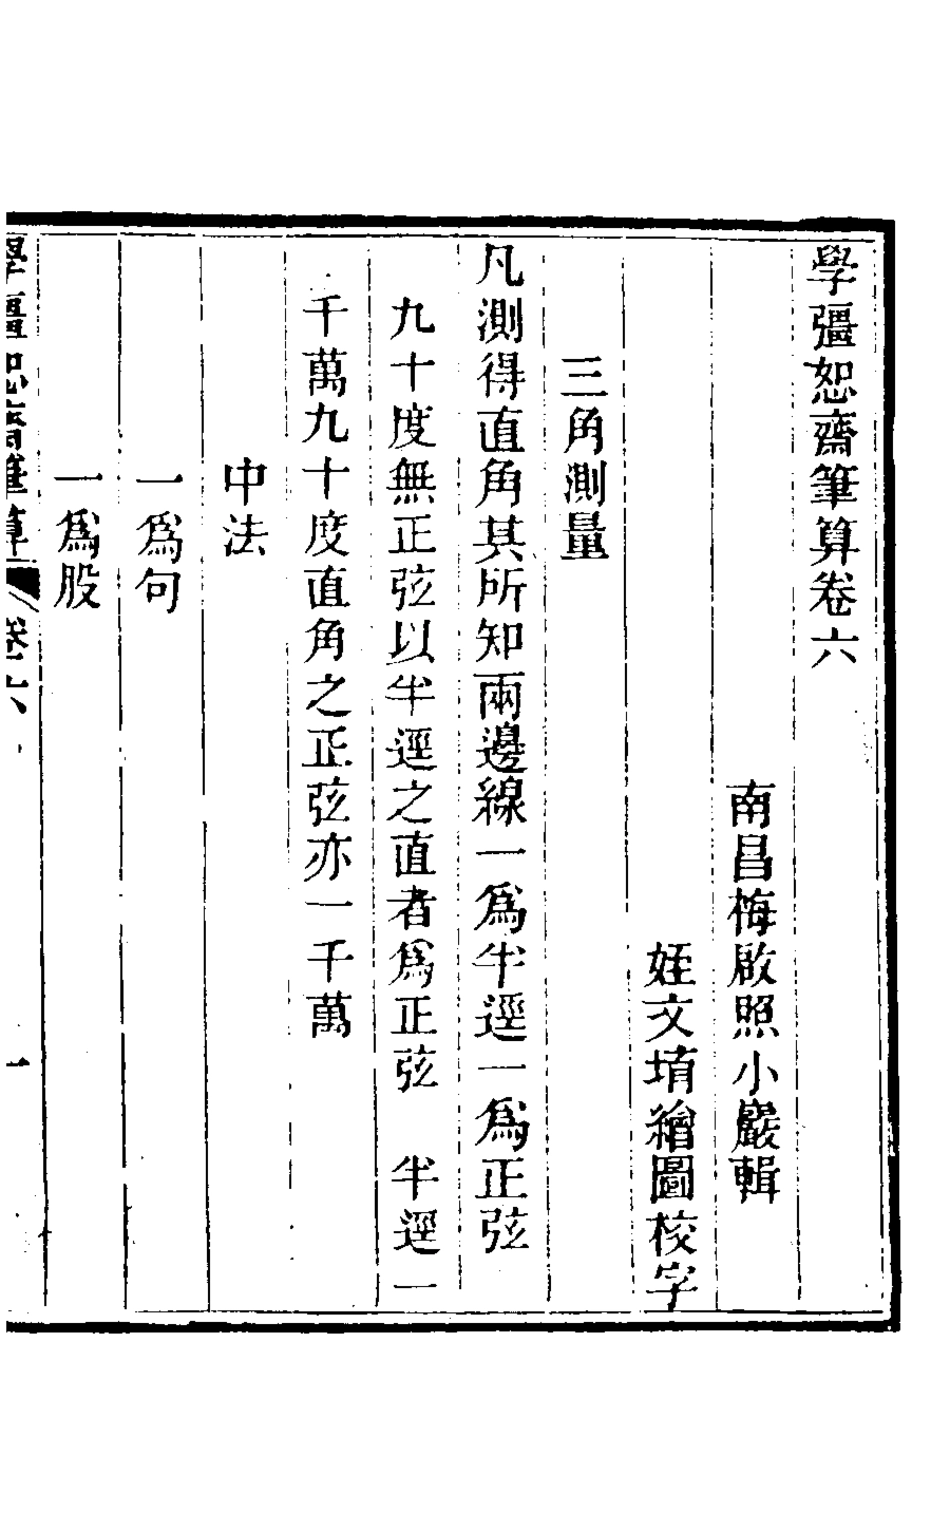 學彊恕齋筆算卷六
南昌梅啟照小巖輯
姪文堉繪圖校字
三角測量
凡測得直角其所知兩邊線一爲半逕一爲正弦
九十度無正弦以半逕之直者爲正弦 半逕一
千萬九十度直角之正弦亦一千萬
中法
一爲句
一爲股
學彊恕齋筆算 卷六 一